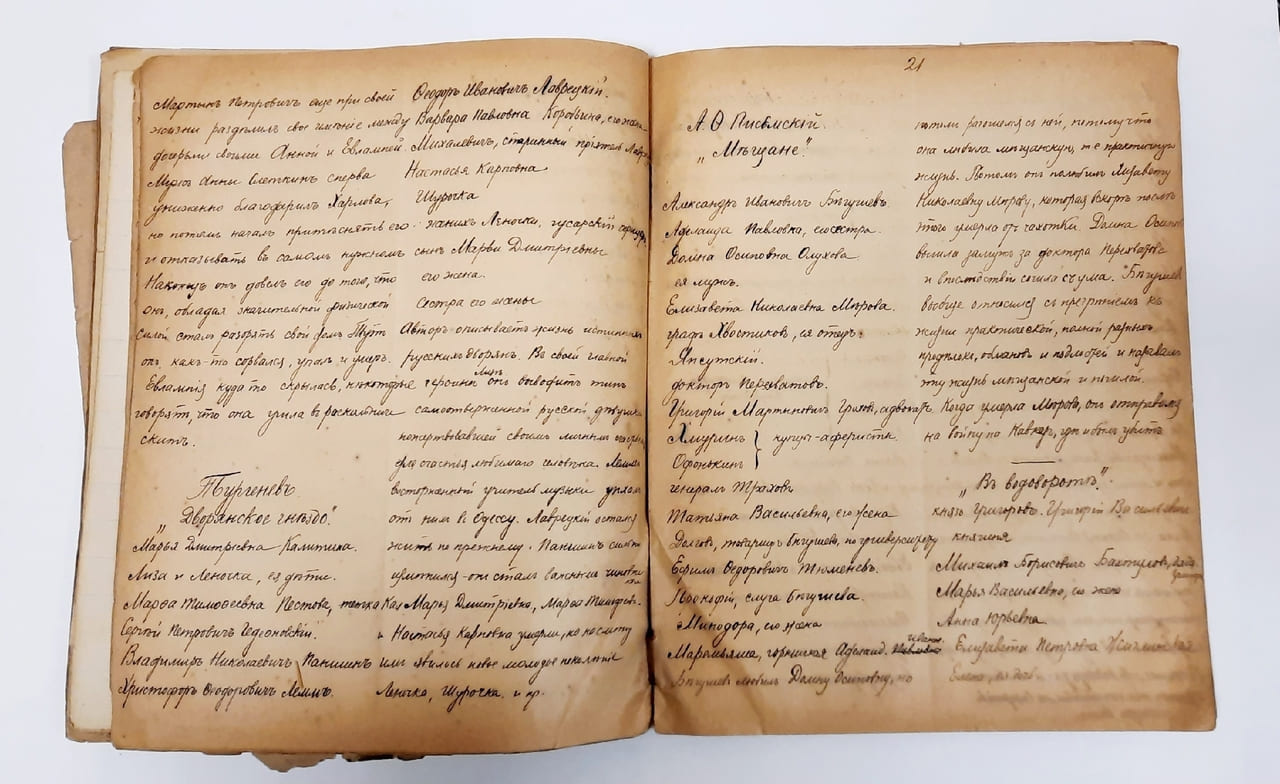 Мартынъ Петровичъ еще при своей
жизни раздѣлилъ свое имѣніе между
дочерьми своими Анной и Евлампіей
Мужъ Анны Слеткинъ сперва
униженно благодарилъ Харлова,
но потомъ началъ притѣснять его
и отказывать въ самомъ нужномъ
Наконецъ онъ довелъ его до того, что
онъ, обладая значительной физической
силой сталъ разорять свой домъ. Тутъ
онъ какъ-то сорвался, упалъ и умеръ.
Евлампія куда то скрылась, нѣкоторые
говорятъ, что она ушла въ раскольничій
скитъ.
Тургеневъ.
„Дворянское гнѣздо“
Марья Дмитріевна Калитина.
Лиза и Леночка, ея дѣти.
Марѳа Тимоѳеевна Пестова, тетка Кал
Сергѣй Петровичъ Гедеоновскій.
Владимиръ Николаевичъ Паншинъ
Христофоръ Ѳеодоровичъ Леммъ.
Ѳеодоръ Ивановичъ Лаврецкій.
Варвара Павловна Коробьина, его жена
Михалевичъ, старинный пріятель Лавр
Настасья Карповна
Шурочка
женихъ Леночки, гусарскій офицеръ
сынъ Марьи Дмитріевны
его жена.
Сестра его жены
Авторъ описываетъ жизнь истинныхъ
русскихъ дворянъ. Въ своей главной
героинѣ Лизѣ онъ выводитъ типъ
самоотверженной русской дѣвушки
пожертвовавшей своимъ личнымъ
для счастья любимаго человѣка. Леммъ
восторженный учитель музыки уѣхалъ
отъ нихъ въ Одессу. Лаврецкій остался
жить по прежнему. Паншинъ сильно
измѣнился - онъ сталъ важнымъ чиновникомъ
Марья Дмитріевна, Марѳа Тимоѳев.
и Настасья Карповна умерли, но на смѣну
имъ явилось новое молодое поколѣніе
Леночка, Шурочка и пр.
21
А. Ѳ Писемскій.
„Мѣщане“.
Александръ Ивановичъ Бѣгушевъ
Аделаида Павловна, его сестра.
Домна Осиповна Олухова
ея мужъ.
Елизавета Николаевна Мѣрова.
графъ Хвостиковъ, ея отецъ.
Янсутскій.
докторъ Перехватовъ.
Григорій Мартыновичъ Грохов, адвокатъ.
Хмуринъ } купцы-аферисты.
Офонькинъ
генералъ Траховъ
Татьяна Васильевна, его жена
Долговъ, товарищъ Бѣгушева, по университету
Ефимъ Ѳедоровичъ Тюменевъ.
Прокофій, слуга Бѣгушева.
Минодора, его жена
Маремьяша, горничная Аделаид. Иван.
Бѣгушевъ любилъ Домну Осиповну, но
потомъ разошелся съ ней, потому что
она любила мѣщанскую, т. е. практичную
жизнь. Потомъ онъ полюбилъ Лизавету
Николаевну Мѣрову, которая вскорѣ послѣ
этого умерла отъ чахотки. Домна Осиповна
вышла замужъ за доктора Перехватова
и впослѣдствіи сошла съ ума. Бѣгушевъ
вообще относился съ презрѣніемъ къ
жизни практической, полной разныхъ
предпріят, обмановъ и подлостей и называлъ
эту жизнь мѣщанской и пошлой.
Когда умерла Мѣрова, онъ отправился
на войну на Кавказъ, гдѣ и былъ убитъ.
„Въ водоворотѣ“.
князь Григоровъ Григорій Васильевичъ
княгиня
Михаилъ Борисовичъ Бахтуловъ, дядя
Марья Васильевна, его жена
Анна Юрьевна
Елизавета Петровна Жиглинская
Елена, ея дочь.